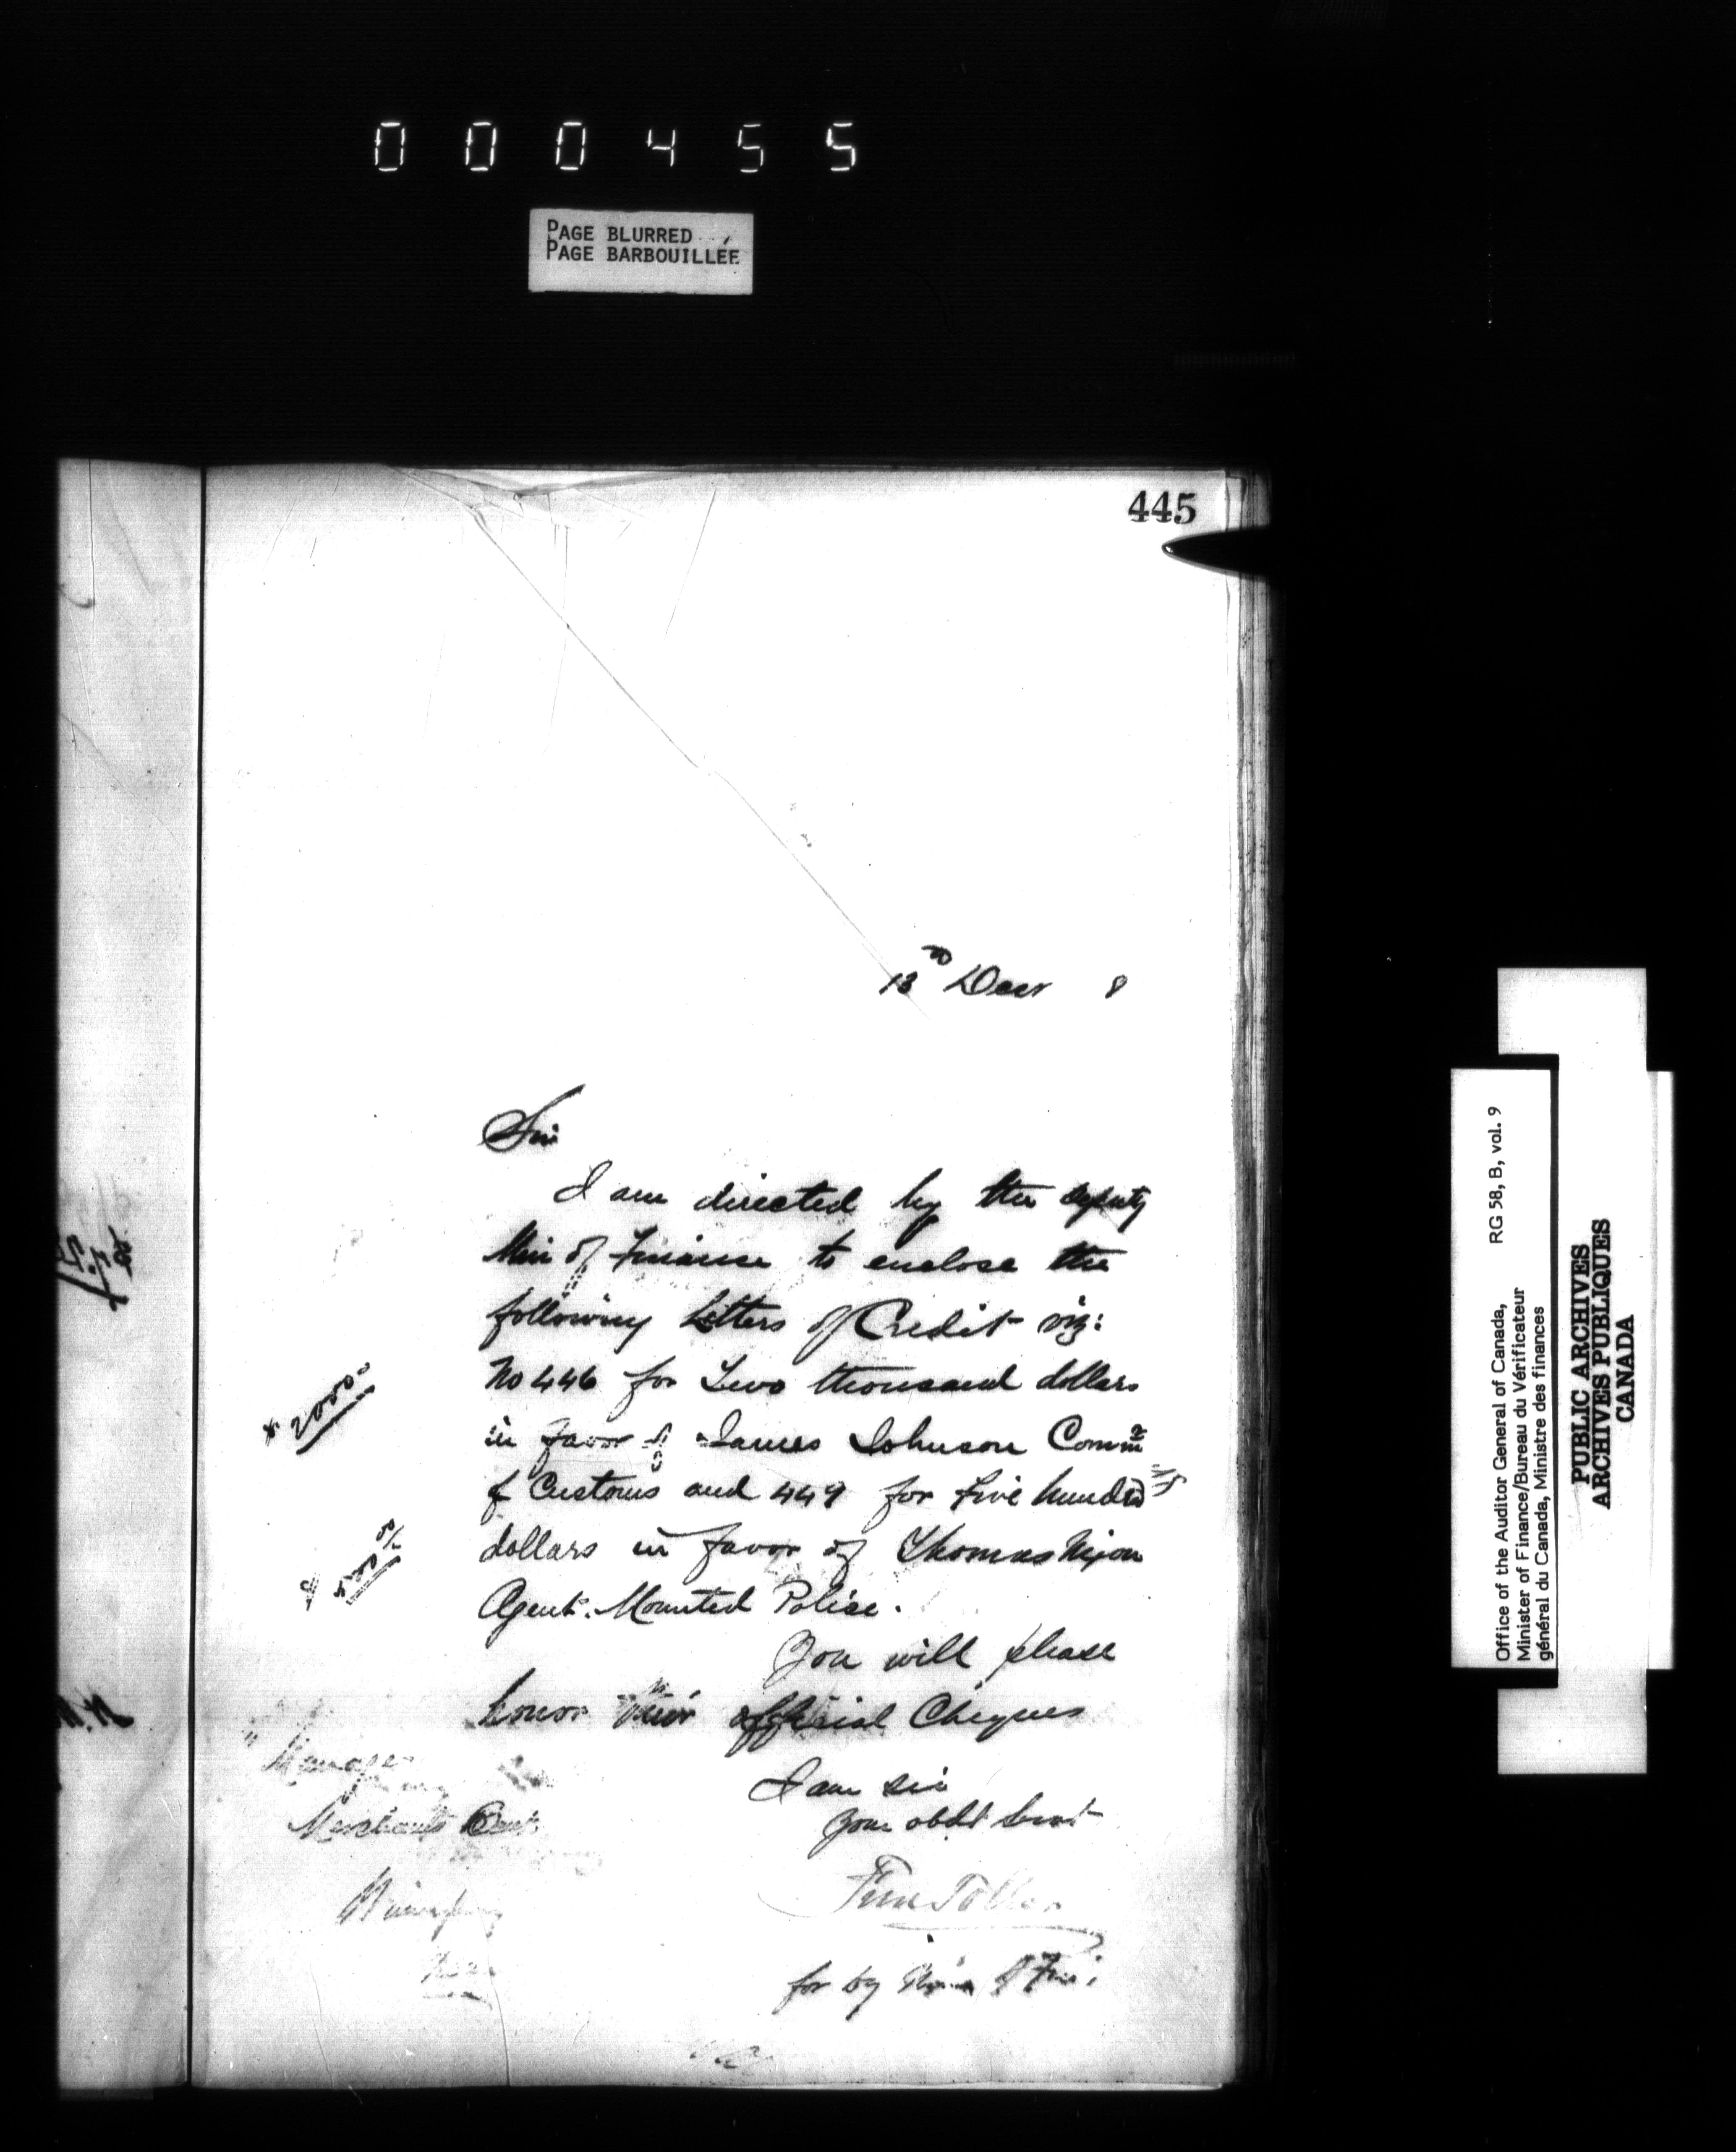 000455
PAGE BLURRED
PAGE BARBOUILLÉE
445
13th Decr 8
Sir
I am directed by the Deputy
Min of Finance to enclose the
following Letters of Credit viz:
No 446 for Two thousand dollars
$ 2000
in favor of James Johnson Commr
of Customs and 449 for Five hundred
dollars in favor of Thomas Nixon
Agent. Mounted Police.
You will please
honor their official Cheques
I am sir
your obdt servt
Toller
for Min of Fin
Manager
Merchants Bank
Winnipeg
Office of the Auditor General of Canada, RG 58, B, vol. 9
Minister of Finance/Bureau du Vérificateur
général du Canada, Ministre des finances
PUBLIC ARCHIVES
ARCHIVES PUBLIQUES
CANADA